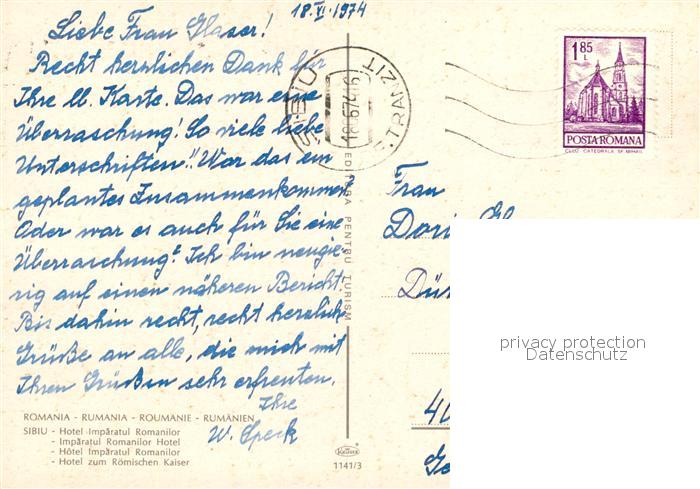 18.VI.1974
Liebe Frau Glaser!
Recht herzlichen Dank für
Ihre ll. Karte. Das war eine
Überraschung! So viele liebe
Unterschriften!! War das ein
geplantes Zusammenkommen?
Oder war es auch für Sie eine
Überraschung? Ich bin neugie-
rig auf einen näheren Bericht.
Bis dahin recht, recht herzliche
Grüße an alle, die mich mit
Ihren Grüßen sehr erfreuten.
Ihre
W. Speck
ROMANIA - RUMANIA - ROUMANIE - RUMÄNIEN
SIBIU - Hotel Împăratul Romanilor
- Împăratul Romanilor Hotel
- Hôtel Împăratul Romanilor
- Hotel zum Römischen Kaiser
EDITURA PENTRU TURISM
1141/3
SIBIU
TRANZIT
1 85
L
POSTA ROMANA
CLUJ CATEDRALA SF. MIHAIL
Frau
privacy protection
Datenschutz